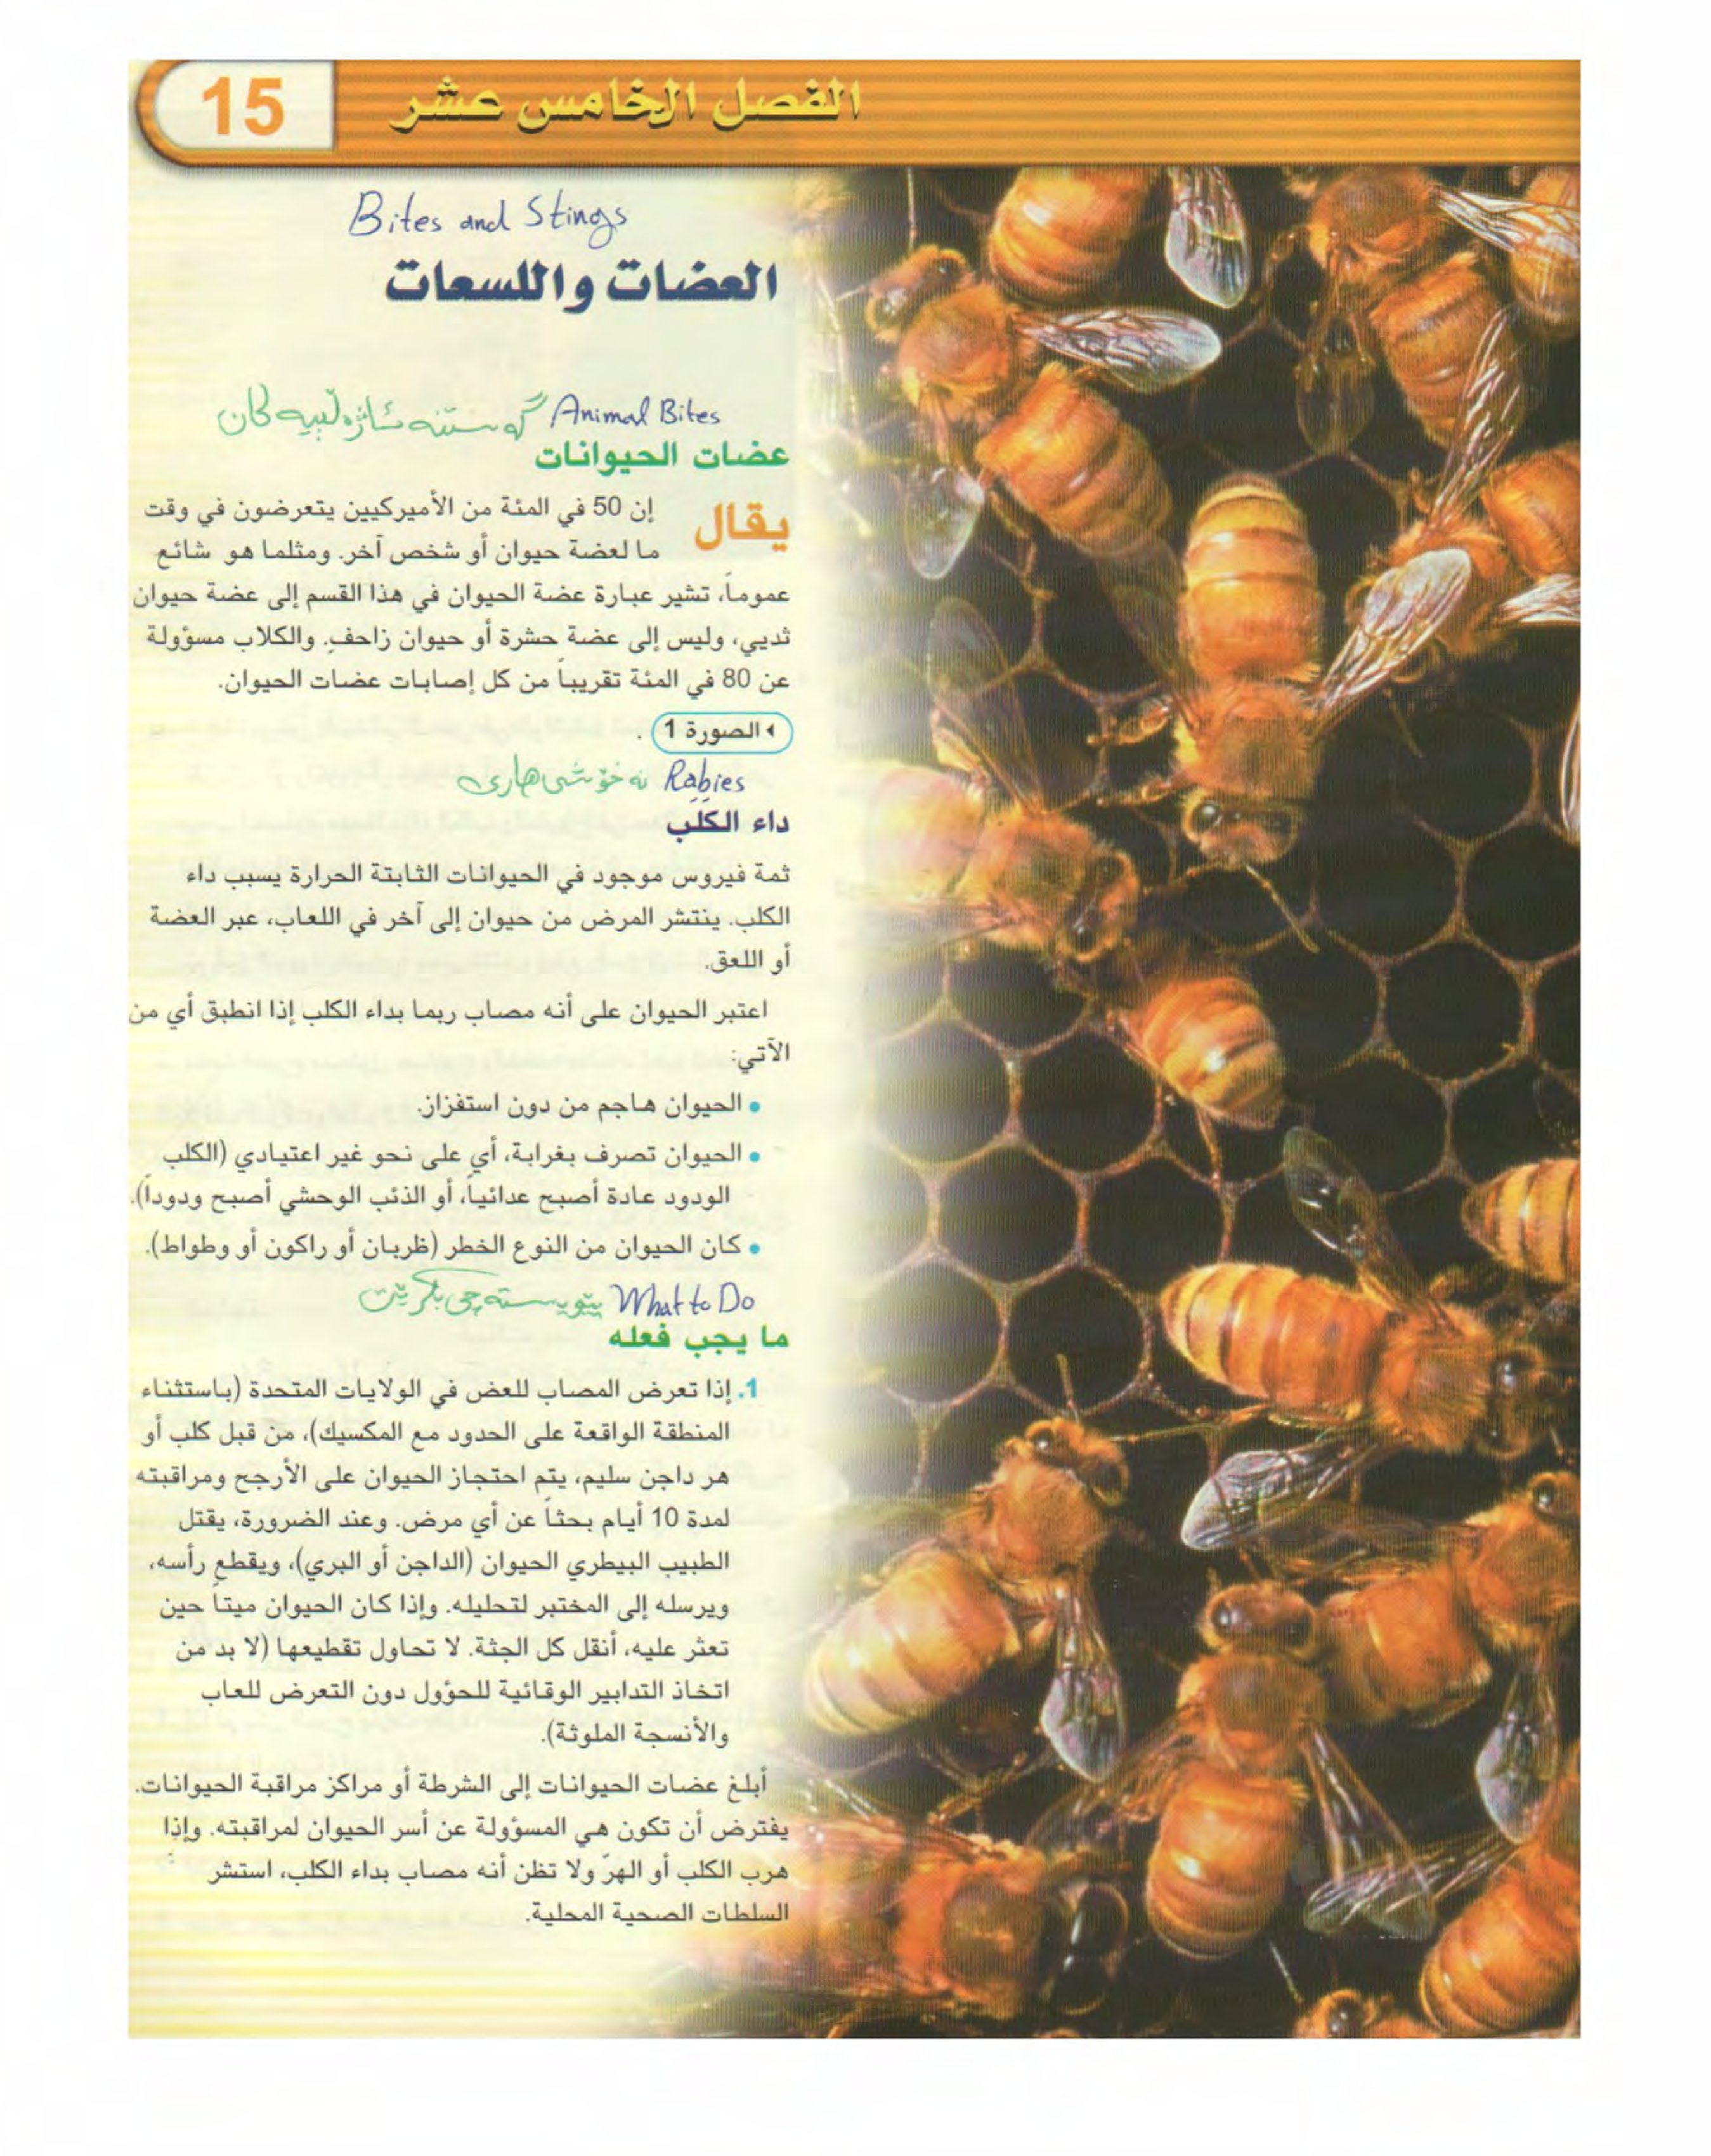 الفصل الخامس عشر
15
Bites and Stings
العضات واللسعات
Animal Bites گەستنە ئاژەڵییەکان
عضات الحيوانات
يقال إن 50 في المئة من الأميركيين يتعرضون في وقت
ما لعضة حيوان أو شخص آخر. ومثلما هو شائع
عموماً، تشير عبارة عضة الحيوان في هذا القسم إلى عضة حيوان
ثديي، وليس إلى عضة حشرة أو حيوان زاحف. والكلاب مسؤولة
عن 80 في المئة تقريباً من كل إصابات عضات الحيوان.
الصورة 1 .
Rabies نەخۆشی هاری
داء الكَلَب
ثمة فيروس موجود في الحيوانات الثابتة الحرارة يسبب داء
الكلب. ينتشر المرض من حيوان إلى آخر في اللعاب، عبر العضة
أو اللعق.
اعتبر الحيوان على أنه مصاب ربما بداء الكلب إذا انطبق أي من
الآتي:
• الحيوان هاجم من دون استفزاز.
• الحيوان تصرف بغرابة، أي على نحو غير اعتيادي (الكلب
الودود عادة أصبح عدائياً، أو الذئب الوحشي أصبح ودوداً).
• كان الحيوان من النوع الخطر (ظربان أو راكون أو وطواط).
What to Do پێویستە چی بکرێت
ما يجب فعله
1. إذا تعرض المصاب للعض في الولايات المتحدة (باستثناء
المنطقة الواقعة على الحدود مع المكسيك)، من قبل كلب أو
هر داجن سليم، يتم احتجاز الحيوان على الأرجح ومراقبته
لمدة 10 أيام بحثاً عن أي مرض. وعند الضرورة، يقتل
الطبيب البيطري الحيوان (الداجن أو البري)، ويقطع رأسه،
ويرسله إلى المختبر لتحليله. وإذا كان الحيوان ميتاً حين
تعثر عليه، أنقل كل الجثة. لا تحاول تقطيعها (لا بد من
اتخاذ التدابير الوقائية للحؤول دون التعرض للعاب
والأنسجة الملوثة).
أبلغ عضات الحيوانات إلى الشرطة أو مراكز مراقبة الحيوانات.
يفترض أن تكون هي المسؤولة عن أسر الحيوان لمراقبته. وإذا
هرب الكلب أو الهرّ ولا تظن أنه مصاب بداء الكلب، استشر
السلطات الصحية المحلية.